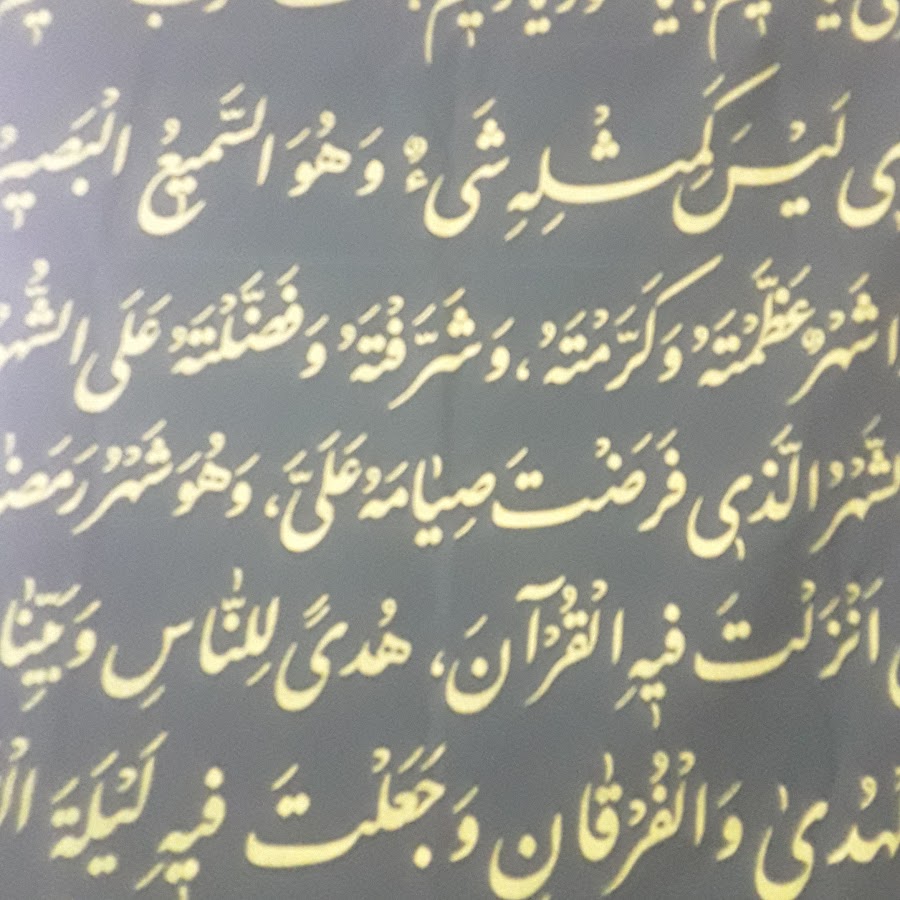 ی لَیْسَ کَمِثْلِهِ شَیْءٌ وَهُوَ السَّمیعُ الْبَصیرُ
شَهْرٌ عَظَّمْتَهُ وَکَرَّمْتَهُ، وَشَرَّفْتَهُ وَفَضَّلْتَهُ عَلَی الشُّهُو
لشَّهْرُ الَّذی فَرَضْتَ صِیٰامَهُ عَلَیَّ، وَهُوَ شَهْرُ رَمَضٰ
اَنْزَلْتَ فیهِ الْقُرْآنَ، هُدیً لِلنّٰاسِ وَبَیِّنٰا
لْهُدیٰ وَالْفُرْقٰانِ وَجَعَلْتَ فیهِ لَیْلَةَ الْ